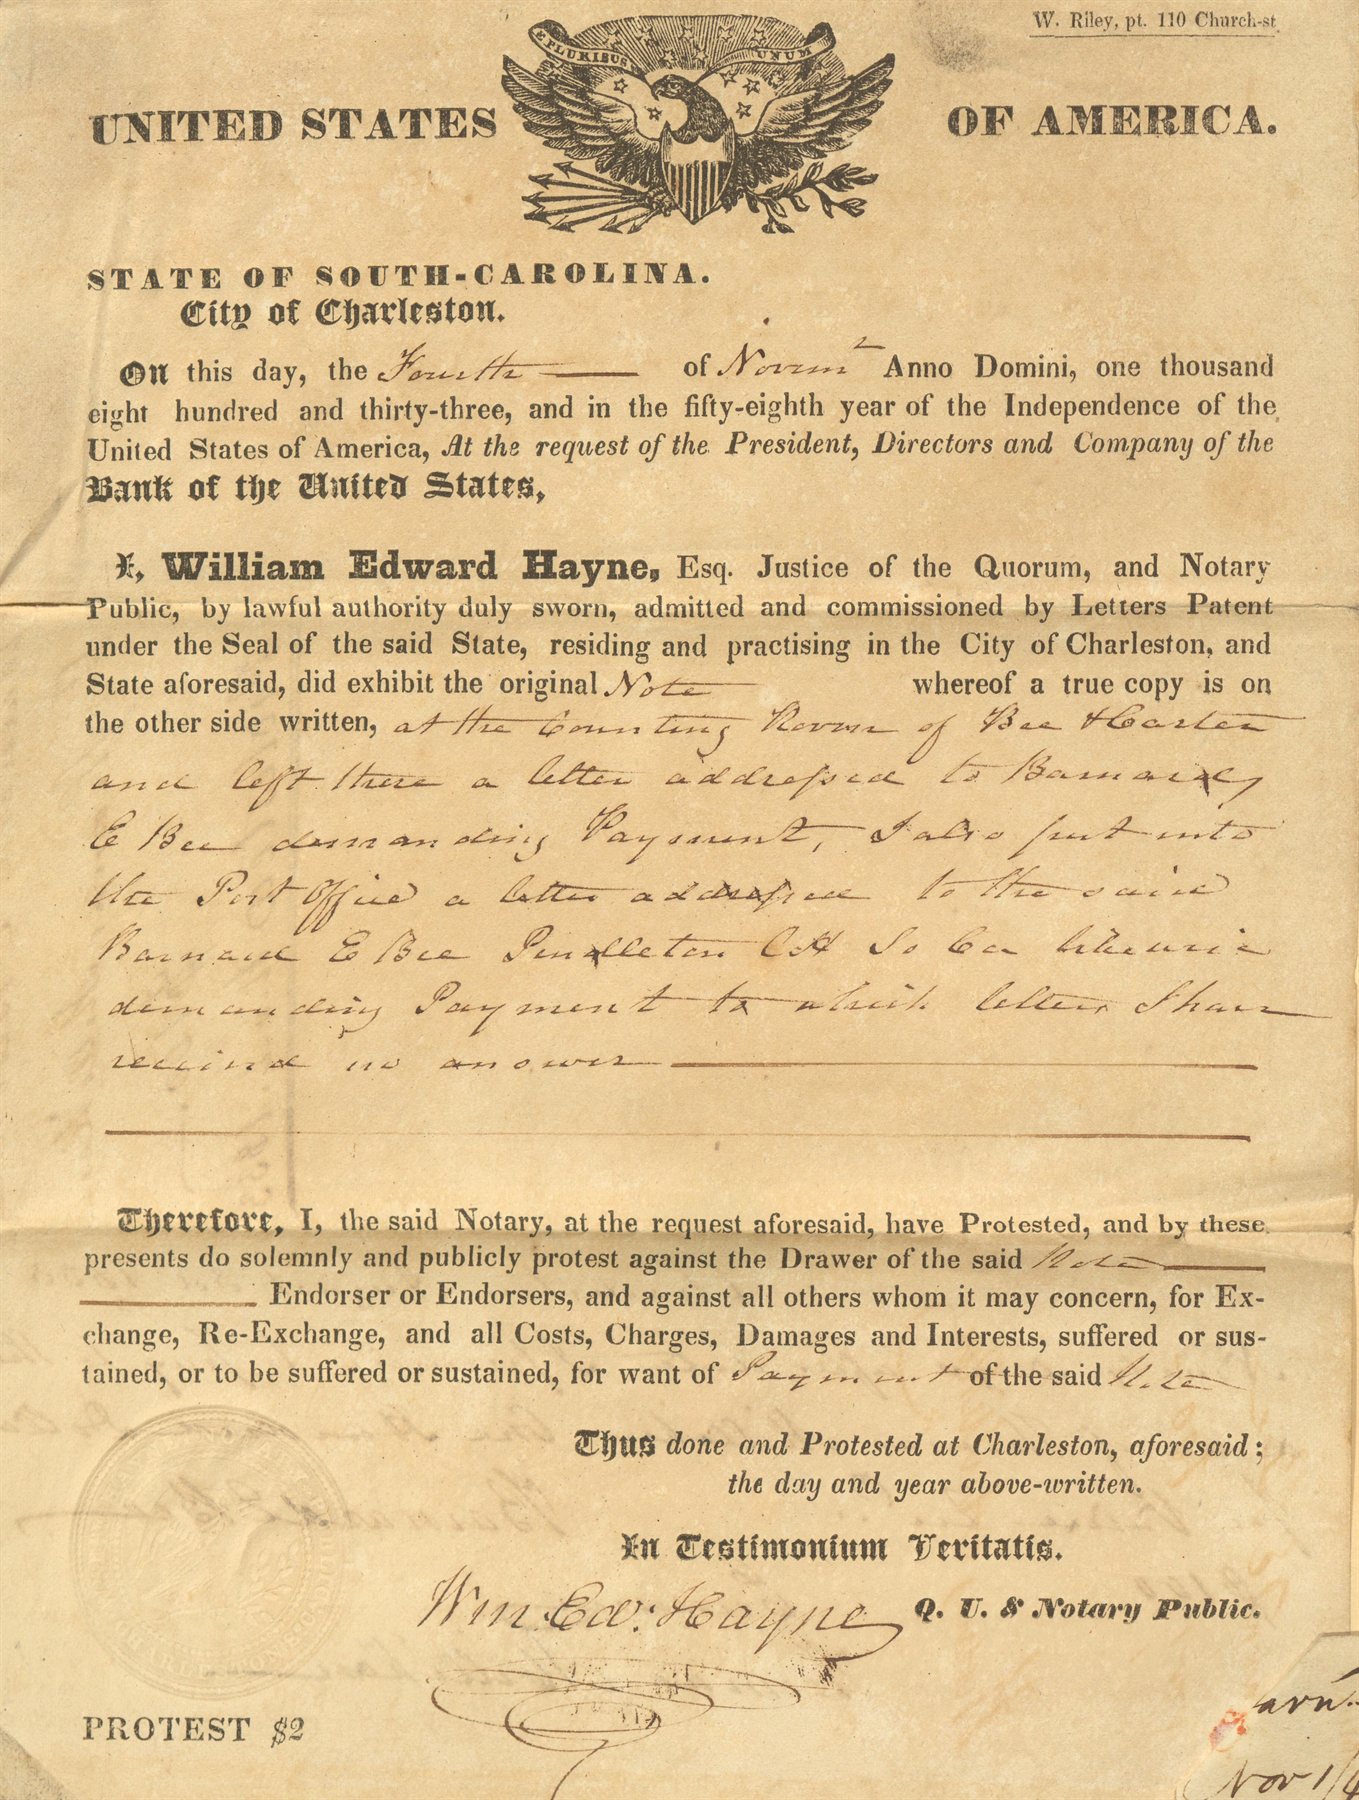 W. Riley, pt. 110 Church-st
E PLURIBUS UNUM
UNITED STATES OF AMERICA.
STATE OF SOUTH-CAROLINA.
City of Charleston.
On this day, the Fourth of Novem r Anno Domini, one thousand
eight hundred and thirty-three, and in the fifty-eighth year of the Independence of the
United States of America, At the request of the President, Directors and Company of the
Bank of the United States,
I, William Edward Hayne, Esq. Justice of the Quorum, and Notary
Public, by lawful authority duly sworn, admitted and commissioned by Letters Patent
under the Seal of the said State, residing and practising in the City of Charleston, and
State aforesaid, did exhibit the original Note whereof a true copy is on
the other side written, at the Counting Room of Bee & Carter
and left there a letter addressed to Barnard,
E Bee demanding Payment, I also put into
the Post Office a letter addressed to the said
Barnard E Bee Pendleton CH So Ca likewise
demanding Payment to which letters I have
received no answer
Therefore, I, the said Notary, at the request aforesaid, have Protested, and by these
presents do solemnly and publicly protest against the Drawer of the said Note
Endorser or Endorsers, and against all others whom it may concern, for Ex-
change, Re-Exchange, and all Costs, Charges, Damages and Interests, suffered or sus-
tained, or to be suffered or sustained, for want of Payment of the said Note
Thus done and Protested at Charleston, aforesaid;
the day and year above-written.
In Testimonium Veritatis.
Wm. Edw: Hayne Q. U. & Notary Public.
PROTEST $2
Nov 1/4